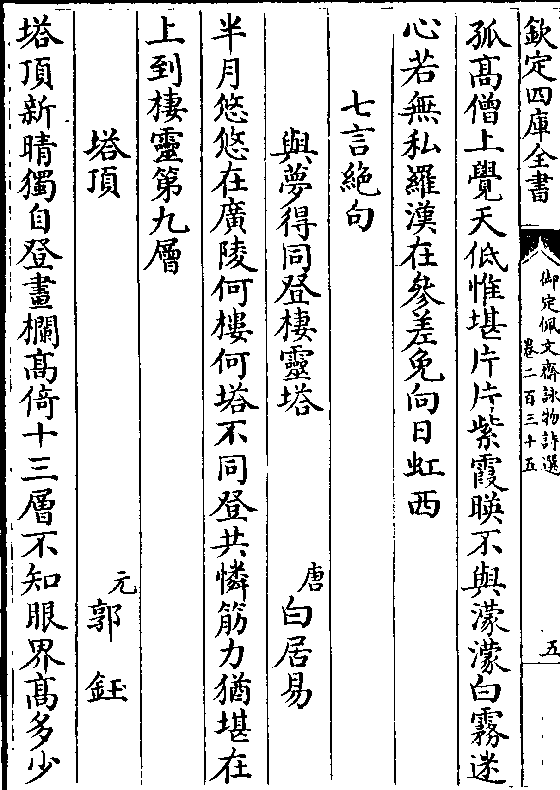 欽定四庫全書
御定佩文齋詠物詩選
卷二百三十五
五
孤高僧上覺天低惟堪片片紫霞暎不與濛濛白霧迷
心若無私羅漢在參差免向日虹西
七言絶句
與夢得同登棲靈塔
唐白居易
半月悠悠在廣陵何樓何塔不同登共憐筋力猶堪在
上到棲靈第九層
塔頂
元郭鈺
塔頂新晴獨自登畫欄高倚十三層不知眼界高多少